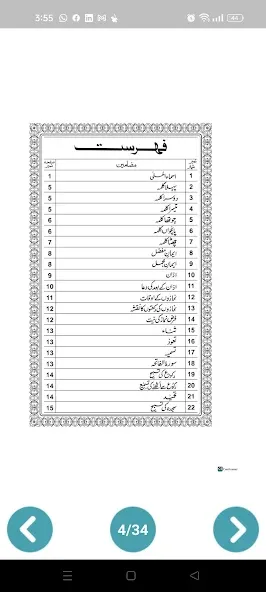 3:55
44
فہرست
نمبر شمار مضامین صفحہ نمبر
1 اسماء الحسنیٰ 1
2 پہلا کلمہ 5
3 دوسرا کلمہ 5
4 تیسرا کلمہ 5
5 چوتھا کلمہ 6
6 پانچواں کلمہ 6
7 چھٹا کلمہ 7
8 ایمان مفصل 8
9 ایمان مجمل 8
10 اذان 9
11 اذان کے بعد کی دعا 10
12 نمازوں کے اوقات 11
13 نمازوں کی رکعتوں کا نقشہ 12
14 فرض نماز کی نیت 12
15 ثناء 13
16 تعوذ 13
17 تسمیہ 13
18 سورۃ الفاتحہ 13
19 رکوع کی تسبیح 14
20 رکوع سے اٹھنے کی تسبیح 14
21 14
22 سجدہ کی تسبیح 15
4/34